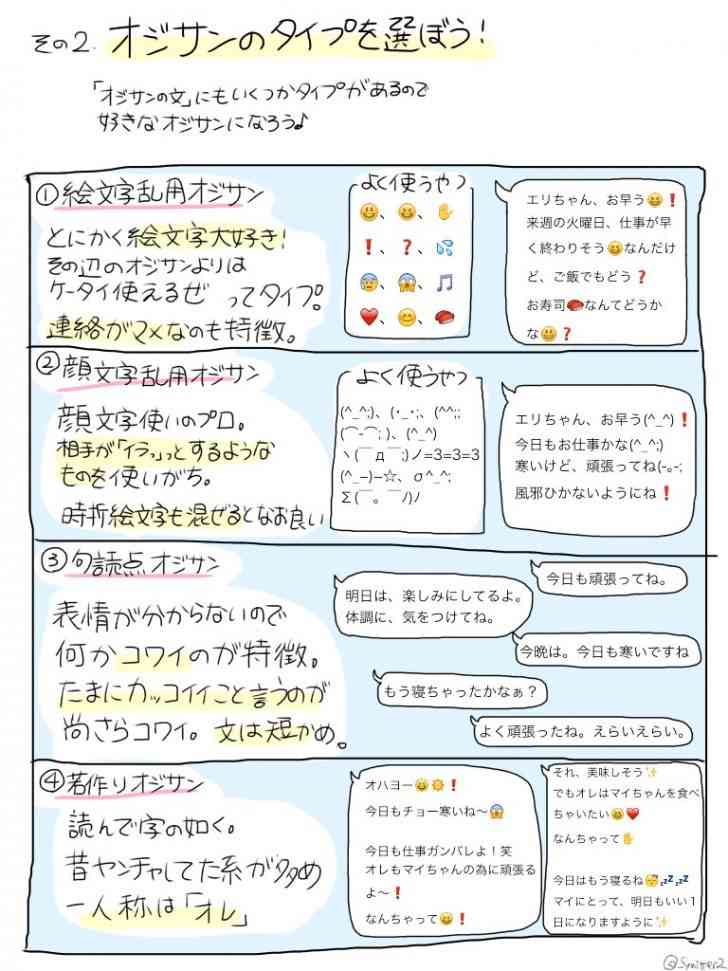 その2. オジサンのタイプを選ぼう!
「オジサンの文」にもいくつかタイプがあるので
好きなオジサンになろう♪
①絵文字乱用オジサン
とにかく絵文字大好き!
その辺のオジサンよりは
ケータイ使えるぜ ってタイプ!
連絡がマメなのも特徴。
よく使うやつ
😃、😆、✋
❗、❓、💦
😰、😱、🎵
❤️、😊、🍣
エリちゃん、お早う😆❗
来週の火曜日、仕事が早
く終わりそう😆なんだけ
ど、ご飯でもどう❓
お寿司🍣なんてどうか
な😃❓
②顔文字乱用オジサン
顔文字使いのプロ。
相手が「イラっ」っとするような
ものを使いがち。
時折絵文字も混ぜるとなお良い
よく使うやつ
(^_^;)、(･_･;、(^^;;
(⌒-⌒; )、(^_^)
ヽ(￣д￣;)ノ=3=3=3
(^_−)−☆、σ^_^;
Σ(￣。￣ﾉ)ﾉ
エリちゃん、お早う(^_^)❗
今日もお仕事かな(^_^;)
寒いけど、頑張ってね(-｡-;
風邪ひかないようにね❗
③句読点オジサン
表情が分からないので
何かコワイのが特徴。
たまにカッコイイこと言うのが
尚さらコワイ。文は短かめ。
今日も頑張ってね。
明日は、楽しみにしてるよ。
体調に、気をつけてね。
今晩は。今日も寒いですね
もう寝ちゃったかなぁ？
よく頑張ったね。えらいえらい。
④若作りオジサン
読んで字の如く。
昔ヤンチャしてた系が多め
一人称は「オレ」
オハヨー😆☀️❗
今日もチョー寒いね〜😱
今日も仕事ガンバレよ！笑
オレもマイちゃんの為に頑張る
よ〜❗
なんちゃって😆❗
それ、美味しそう✨
でもオレはマイちゃんを食べ
ちゃいたい😆❤️
なんちゃって✋
今日はもう寝るね😴💤💤
マイにとって、明日もいい１
日になりますように✨